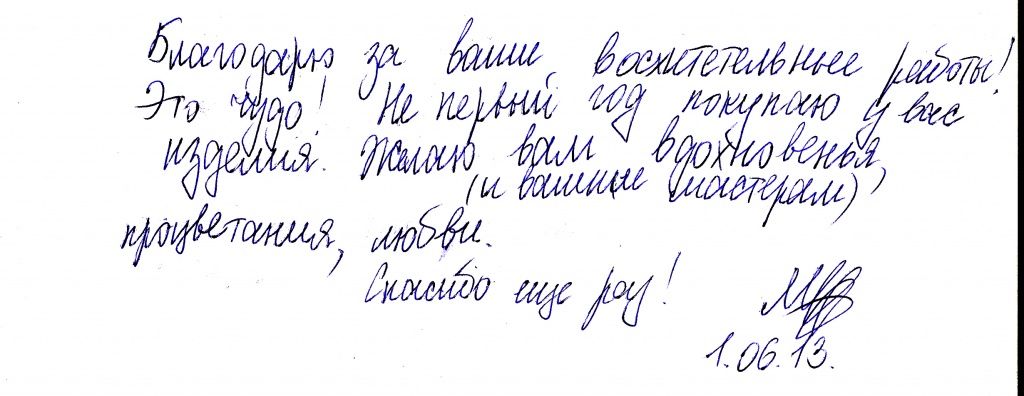 Благодарю за ваши восхитетельные работы!
Это чудо! Не первый год покупаю у вас
изделия. Желаю вам вдохновенья,
(и вашим мастерам)
процветания, любви.
Спасибо еще раз!
1.06.13.